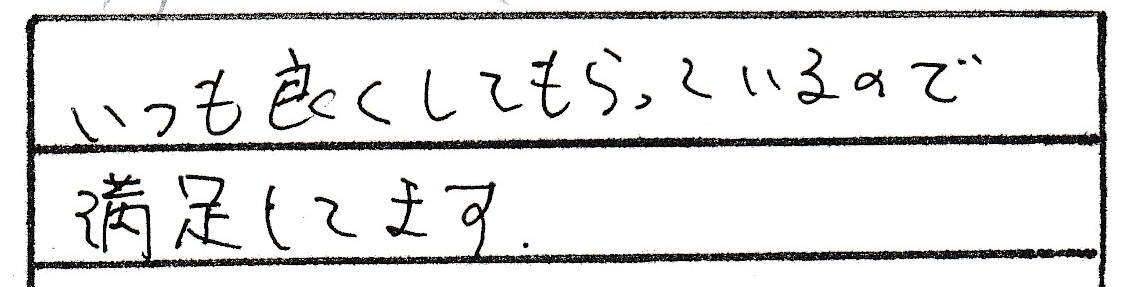 いつも良くしてもらっているので
満足してます.